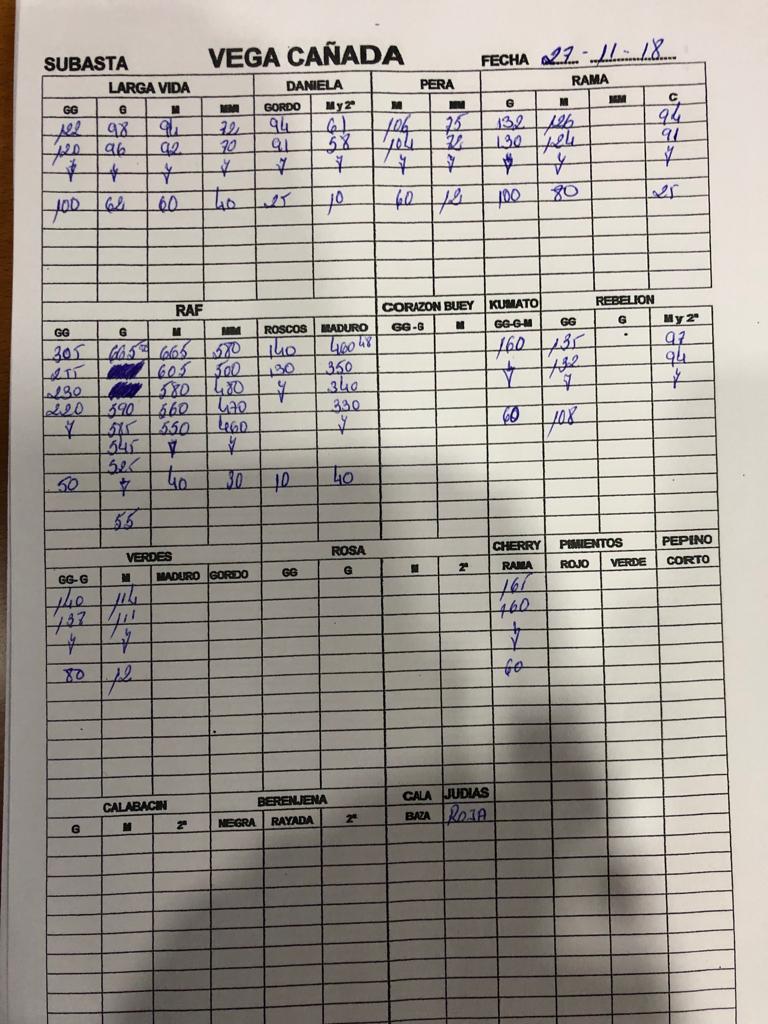 SUBASTA VEGA CAÑADA FECHA 27-11-18
LARGA VIDA DANIELA PERA RAMA
GG G M MM GORDO M y 2ª M MM G M MM C
122 98 94 72 94 61 106 75 132 126 94
120 96 92 70 91 58 104 72 130 124 91
100 62 60 40 25 10 60 12 100 80 25
RAF CORAZON BUEY KUMATO REBELION
GG G M MM ROSCOS MADURO GG-G M GG-G-M GG G M y 2ª
305 665 665 580 140 460 48 160 135 97
255 605 500 130 350 132 94
230 580 480 340
220 590 560 470 330 60 108
585 550 460
545
525
50 40 30 10 40
55
VERDES ROSA CHERRY PIMIENTOS PEPINO
GG-G M MADURO GORDO GG G M 2ª RAMA ROJO VERDE CORTO
140 114 165
137 111 160
80 12 60
CALABACIN BERENJENA CALA JUDIAS
G M 2ª NEGRA RAYADA 2ª BAZA ROJA